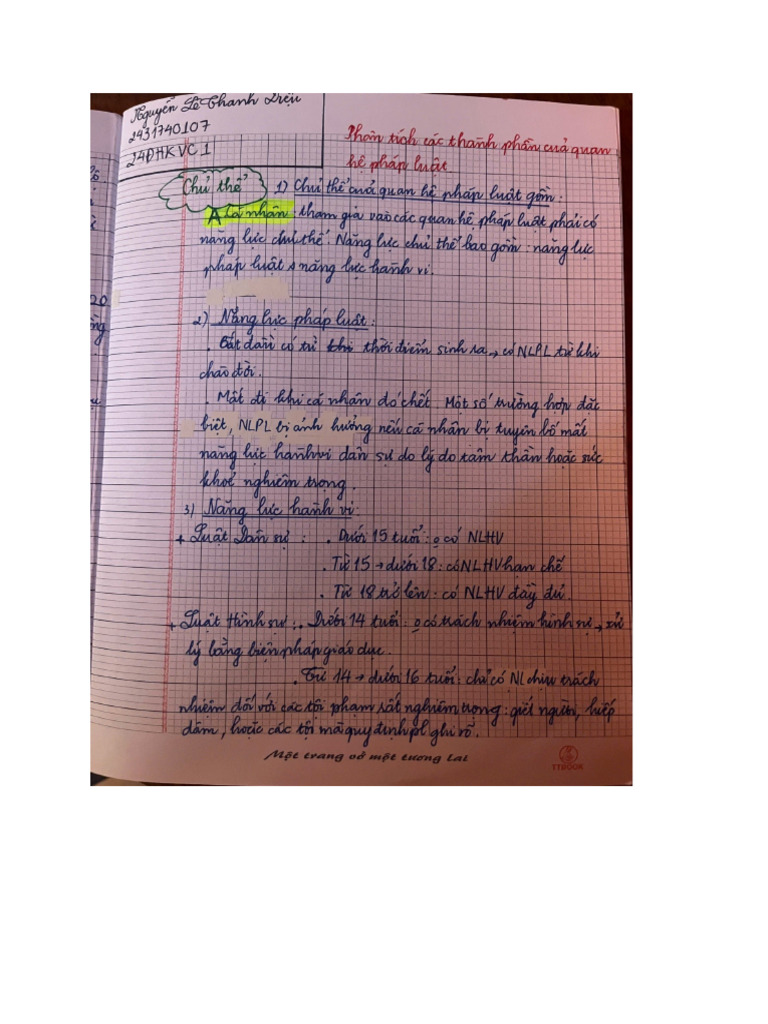 Nguyễn Lê Thanh Triệu
2431740107
24ĐHKVC1
Phân tích các thành phần cuả quan
hệ pháp luật
Chủ thể
1) Chủ thể cuả quan hệ pháp luật gồm :
A Cá nhân : tham gia vào các quan hệ pháp luật phải có
năng lực chủ thể. Năng lực chủ thể bao gồm : năng lực
pháp luật & năng lực hành vi.
2) Năng lực pháp luật :
. Bắt đầu có từ khi thời điểm sinh ra → có NLPL từ khi
chào đời.
. Mất đi khi cá nhân đó chết Một số trường hợp đặc
biệt, NLPL bị ảnh hưởng nếu cá nhân bị tuyên bố mất
năng lực hành vi dân sự do lý do tâm thần hoặc sức
khoẻ nghiêm trọng.
3) Năng lực hành vi :
+ Luật Dân sự : . Dưới 15 tuổi : ko có NLHV
. Từ 15 → dưới 18 : có NLHV hạn chế
. Từ 18 trở lên : có NLHV đầy đủ.
+ Luật Hình sự : . Dưới 14 tuổi : ko có trách nhiệm hình sự → xử
lý bằng biện pháp giáo dục.
. Từ 14 → dưới 16 tuổi : chỉ có NL chịu trách
nhiệm đối với các tội phạm rất nghiêm trọng : giết người, hiếp
dâm, hoặc các tội mà quy định pl ghi rõ.
Một trang vở một tương lai
TTBOOK